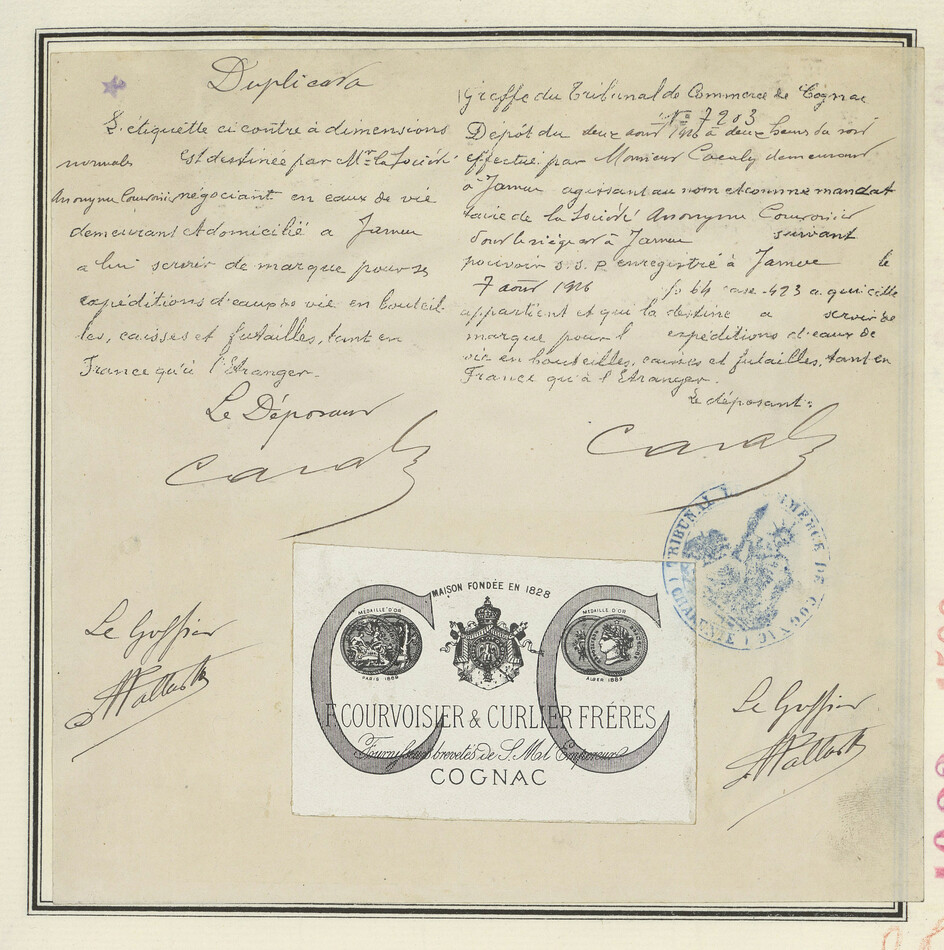 Duplicata
L'étiquette ci contre à dimensions
normales est destinée par Mr la Société
Anonyme Courvoisier négociant en eaux de vie
demeurant et domicilié à Jarnac
a lui servir de marque pour ses
expéditions d'eaux de vie en bouteil-
les, caisses et futailles, tant en
France qu'à l'Etranger.
Le Déposant
Greffe du Tribunal de Commerce de Cognac
No 7203
Dépôt du deux août 1916 à deux heures du soir
effectué par Monsieur demeurant
à Jarnac agissant au nom et comme mandat
taire de la Société Anonyme Courvoisier
dont le siège est à Jarnac suivant
pouvoir s.s.p. enregistré à Jarnac le
7 août 1916 fo 64 case 423 a qui elle
appartient et qui la destine a servir de
marque pour l expéditions d'eaux de
vie en bouteilles, caisses et futailles, tant en
France qu'à l'Etranger.
Le déposant:
TRIBUNAL DE COMMERCE DE COGNAC
(CHARENTE)
MAISON FONDÉE EN 1828
MÉDAILLE D'OR
PARIS 1866
MÉDAILLE D'OR
ALGER 1889
C C
F. COURVOISIER & CURLIER FRÈRES
Fournisseurs brevetés de S. M. l'Empereur
COGNAC
Le Greffier
Le Greffier